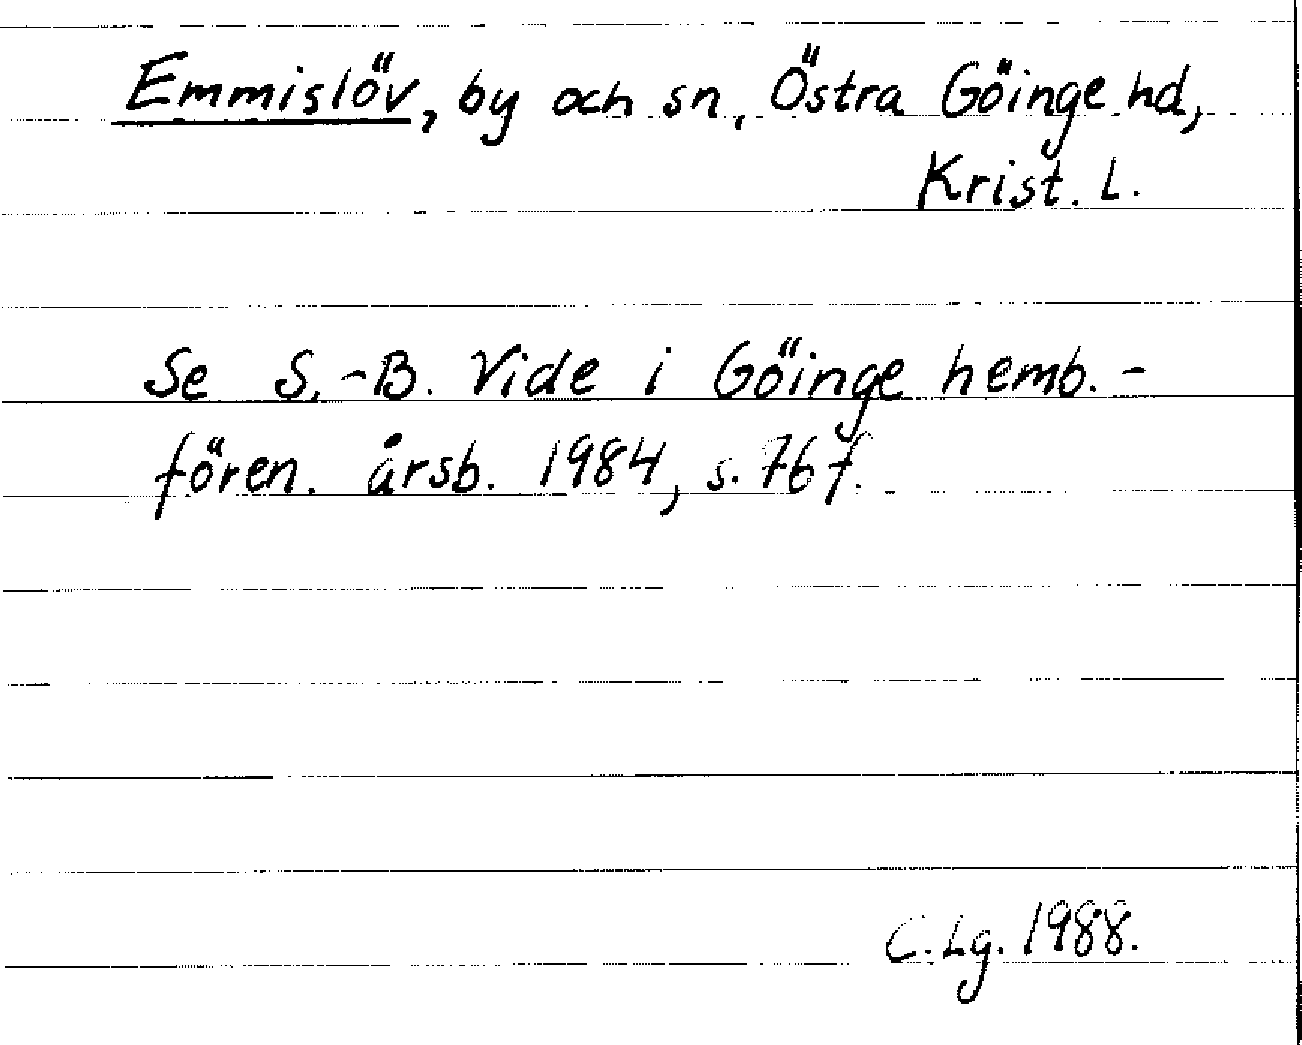 Emmislöv, by och sn, Östra Göinge hd,
Krist. L.
Se S.-B. Vide i Göinge hemb.-
fören. årsb. 1984, s. 76 f.
C. Lg. 1988.